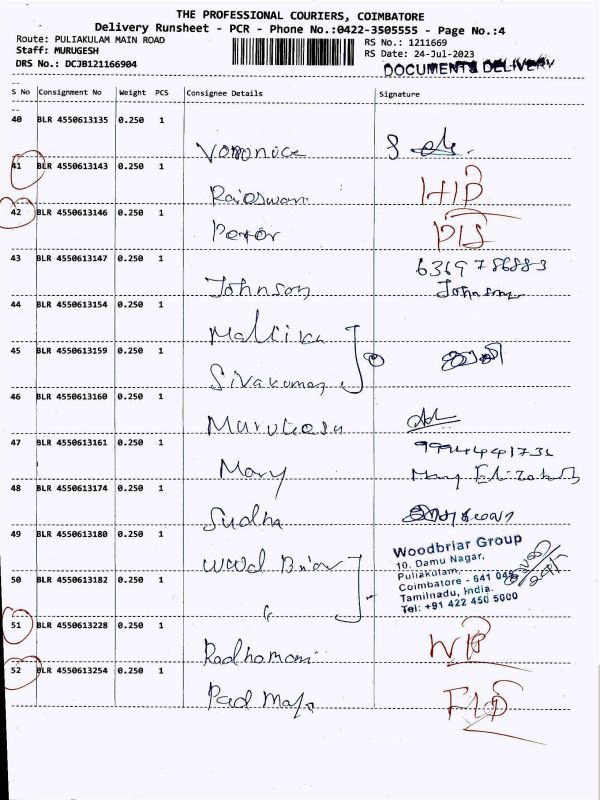 THE PROFESSIONAL COURIERS, COIMBATORE
Delivery Runsheet - PCR - Phone No.:0422-3505555 - Page No.:4
Route: PULIAKULAM MAIN ROAD
RS No.: 1211669
Staff: MURUGESH
RS Date: 24-Jul-2023
DRS No.: DCJB121166904
DOCUMENTS DELIVERY
S No Consignment No Weight PCS Consignee Details Signature
40 BLR 4550613135 0.250 1
Veronica
41 BLR 4550613143 0.250 1
Rajeswari
42 BLR 4550613146 0.250 1
Peter
43 BLR 4550613147 0.250 1
6369786883
Johnson Johnson
44 BLR 4550613154 0.250 1
Mallika
45 BLR 4550613159 0.250 1
Sivakumar
46 BLR 4550613160 0.250 1
Murugesh
47 BLR 4550613161 0.250 1
Mary Mary
48 BLR 4550613174 0.250 1
Sudha
49 BLR 4550613180 0.250 1
Woodbriar Group
10, Damu Nagar,
Puliakulam,
50 BLR 4550613182 0.250 1
Coimbatore - 641 045
Tamilnadu, India.
Tel: +91 422 450 5000
51 BLR 4550613228 0.250 1
Radhamani
52 BLR 4550613254 0.250 1